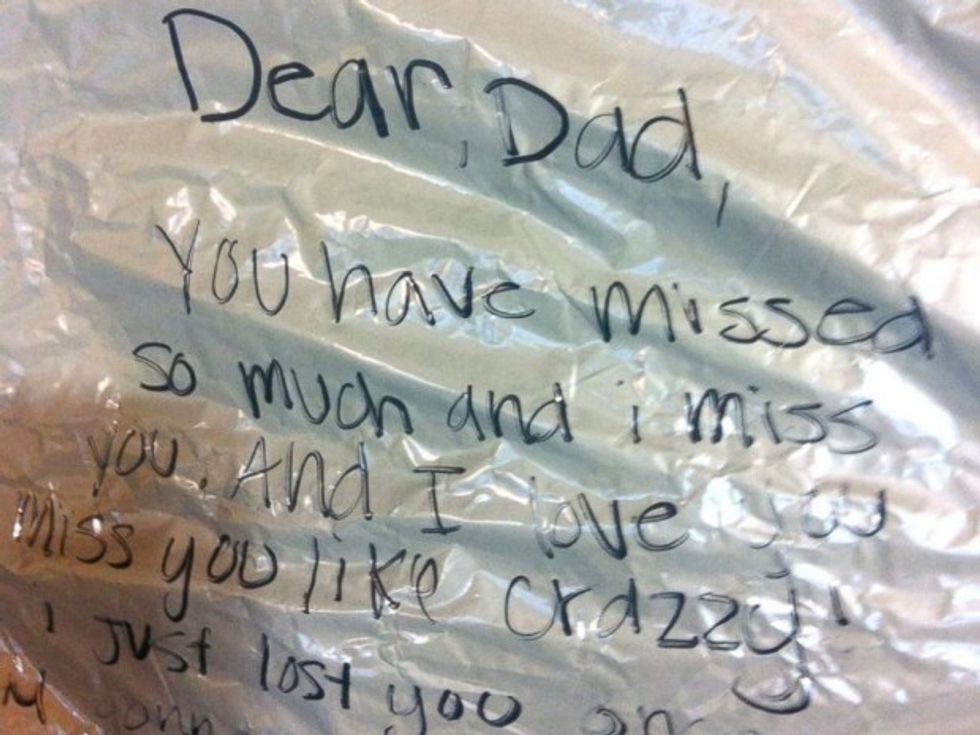 Dear, Dad,
You have missed
so much and i miss
you. And I love you
miss you like crazzy!
i just lost you